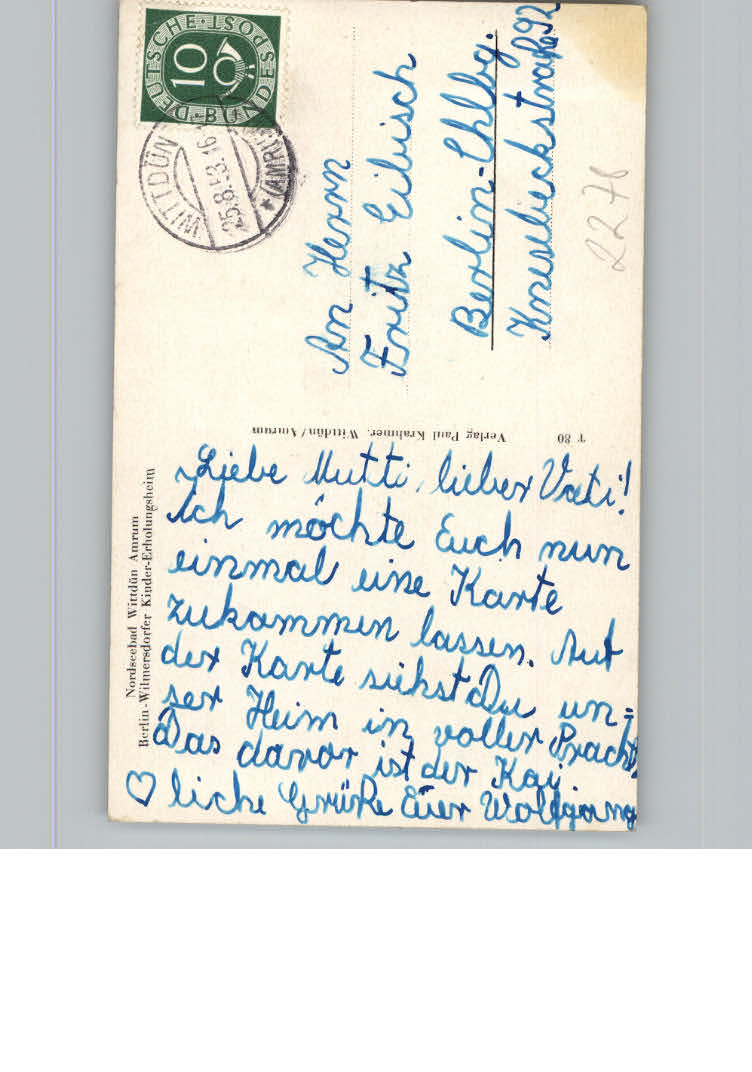 DEUTSCHE·BUNDESPOST
10
WITTDÜN
25.8.53.16
*(AMRUM)
An Herrn
Fritz Eibisch
Berlin-Chlbg.
Knesebeckstraße 92
2278
Verlag Paul Krahmer, Wittdün/Amrum
T 80
Nordseebad Wittdün Amrum
Berlin-Wilmersdorfer Kinder-Erholungsheim
Liebe Mutti, lieber Vati!
Ich möchte Euch nun
einmal eine Karte
zukommen lassen. Auf
der Karte siehst Du un=
ser Heim in voller Pracht.
Das davor ist der Kay.
♡liche Grüße Euer Wolfgang